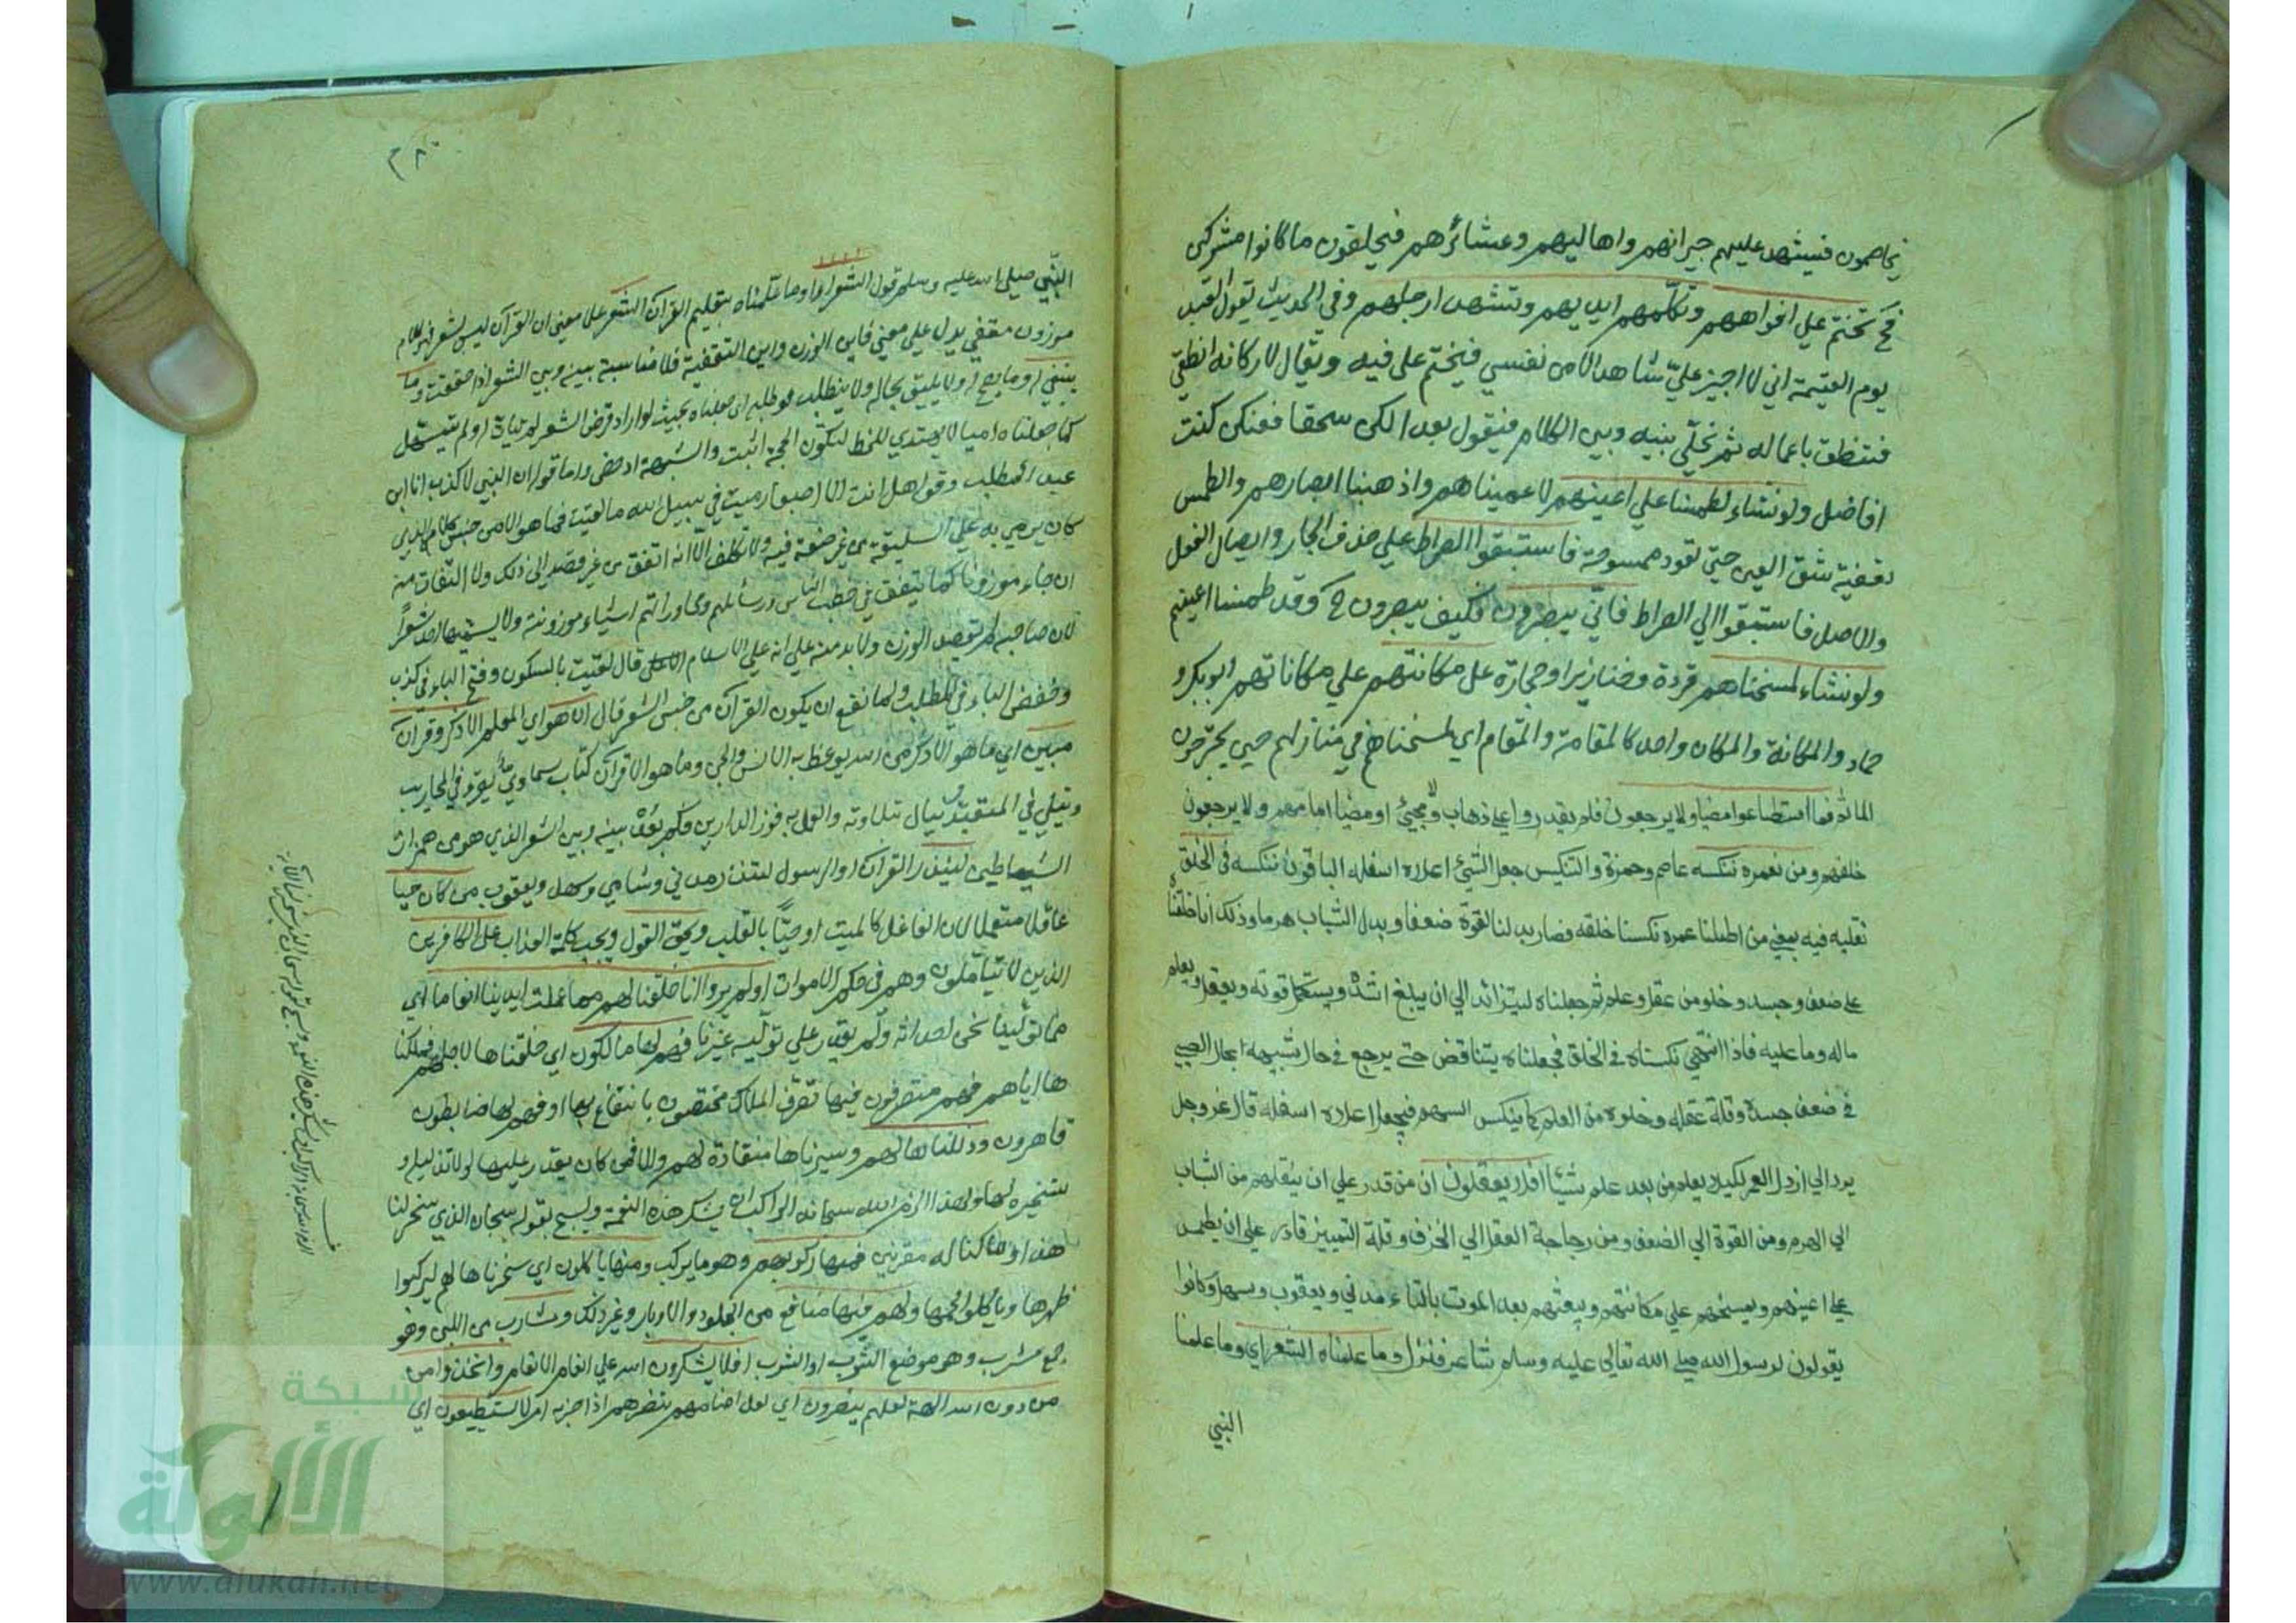 يخاصمون فيشهد عليهم جيرانهم واهاليهم وعشائرهم فيحلفون ما كانوا مشركين
فح نختم علي افواههم وتكلمهم ايديهم وتشهد ارجلهم وفي الحديث يقول العبد
يوم القيمة اني لا اجيز عليّ شاهدا الا من نفسي فيختم على فيه ويقال لاركانه انطقي
فتنطق باعماله ثم يخلّي بينه وبين الكلام فيقول بعدا لكن سحقا فعنكن كنت
اناضل ولو نشاء لطمسنا علي اعينهم لاعميناهم واذهبنا ابصارهم والطمس
تعفية شق العين حتي تعود ممسوحة فاستبقوا الصراط علي حذف الجار وايصال الفعل
والاصل فاستبقوا الي الصراط فانّي يبصرون فكيف يبصرون ح وقد طمسنا اعينهم
ولو نشاء لمسخناهم قردة وخنازير او حجارة على مكانتهم علي مكاناتهم ابو بكر و
حماد والمكانة والمكان واحد كالمقامة والمقام اي لمسخناهم في منازلهم حين يجترحون
الماثم فما استطاعوا مضيا ولا يرجعون فلم يقدروا علي ذهاب ولا مجيئ او مضيا امامهم ولا يرجعون
خلفهم ومن نعمره ننكسه عاصم وحمزة والتنكيس جعل الشيئ اعلاه اسفله الباقون ننكسه في الخلق
نقلبه فيه بمعني من اطلنا عمره نكسنا خلقه فصار بدل القوة ضعفا وبدل الشباب هرما وذلك انا خلقناه
علي ضعف وجسد وخلو من عقل وعلم ثم جعلناه ليتزائد الي ان يبلغ اشده ويستكمل قوته ويعقل ويعلم
ماله وما عليه فاذا انتهي نكسناه في الخلق فجعلناه يتناقص حتي يرجع في حال شبيهة بحال الصبي
في ضعف جسده وقلة عقله وخلوه من العلم كما ينكس السهم فيجعل اعلاه اسفله قال عز وجل
يرد الي ارذل العمر لكيلا يعلم من بعد علم شيئا افلا يعقلون ان من قدر علي ان ينقلهم من الشباب
الي الهرم ومن القوة الي الضعف ومن رجاحة العقل الي الخرف وقلة التمييز قادر علي ان يطمس
علي اعينهم ويمسخهم علي مكانتهم ويبعثهم بعد الموت بالتاء مدني ويعقوب وسهل وكانوا
يقولون لرسول الله صلي الله تعالي عليه وسلم شاعر فنزل وما علمناه الشعر اي وما علمنا
النبي
النبّي صلي الله عليه وسلم قول الشعراء او وما علمناه بتعليم القرآن الشعر على معني ان القرآن ليس بشعر فهو كلام
موزون مقفي يدل علي معني فاين الوزن واين التقفية فلا مناسبة بينه وبين الشعر اذا حققت وما
ينبغي له وما يصح له ولا يليق بحاله ولا يتطلب لو طلبه اي جعلناه بحيث لو اراد قرض الشعر لم يتأت له ولم يتسهل
كما جعلناه اميا لا يهتدي للخط لتكون الحجة اثبت والشبهة ادحض واما قوله انا النبي لا كذب انا ابن
عبد المطلب وقوله هل انت الا اصبع دميت في سبيل الله ما لقيت فما هو الا من جنس كلامه الذي
كان يرمي به علي السليقة من غير صنعة فيه ولا تكلف الا انه اتفق من غير قصد الي ذلك ولا التفات منه
ان جاء موزونا كما يتفق في خطب الناس ورسائلهم ومحاوراتهم اشياء موزونة ولا يسميها احد شعراً
لان صاحبه لم يقصد الوزن ولا بد منه علي انه عليه السلام قال لقيت بالسكون وفتح الباء في كذب
وخفض الباء في المطلب ولما نفي ان يكون القرآن من جنس الشعر قال ان هو اي المعلم الا ذكر وقرآن
مبين اي ما هو الا ذكر من الله يوعظ به الانس والجن وما هو الا قرآن كتاب سماويّ يقرء في المحاريب
ويتلي في المتعبدات وينال بتلاوته والعمل به فوز الدارين فكم بينه وبين الشعر الذي هو من همزات
الشياطين لينذر القرآن او الرسول لتنذر مدني وشامي وسهل ويعقوب من كان حيا
عاقلا متعملا لان الغافل كالميت او حيّا بالقلب ويحق القول ويجب كلمة العذاب على الكافرين
الذين لا يتأملون وهم في حكم الاموات اولم يروا انا خلقنا لهم مما عملت ايدينا انعاما اي
مما تولينا نحن احداثه ولم يقدر علي توليه غيرنا فهم لها مالكون اي خلقناها لاجلهم فملكنا
ها اياهم فهم متصرفون فيها تصرّف الملاك مختصون بالانتفاع بها او فهم لها ضابطون
قاهرون وذللناها لهم وصيرناها منقادة لهم والا فمن كان يقدر عليها لولا تذليله و
تسخيره لها ولهذا الزم الله سبحانه الراكب ان يشكر هذه النعمة ويسبح بقوله سبحان الذي سخر لنا
هذا وما كنا له مقرنين فمنها ركوبهم وهو ما يركب ومنها ياكلون اي سخرناها لهم ليركبوا
ظهرها وياكلوا لحمها ولهم فيها منافع من الجلود والاوبار وغير ذلك ومشارب من اللبن وهو
جمع مشرب وهو موضع الشرب او الشرب افلا يشكرون الله علي انعام الانعام واتخذوا من
من دون الله الهة لعلهم ينصرون اي لعل اصنامهم تنصرهم اذا حزبهم امر لا يستطيعون اي
شبكة
الألوكة
www.alukah.net